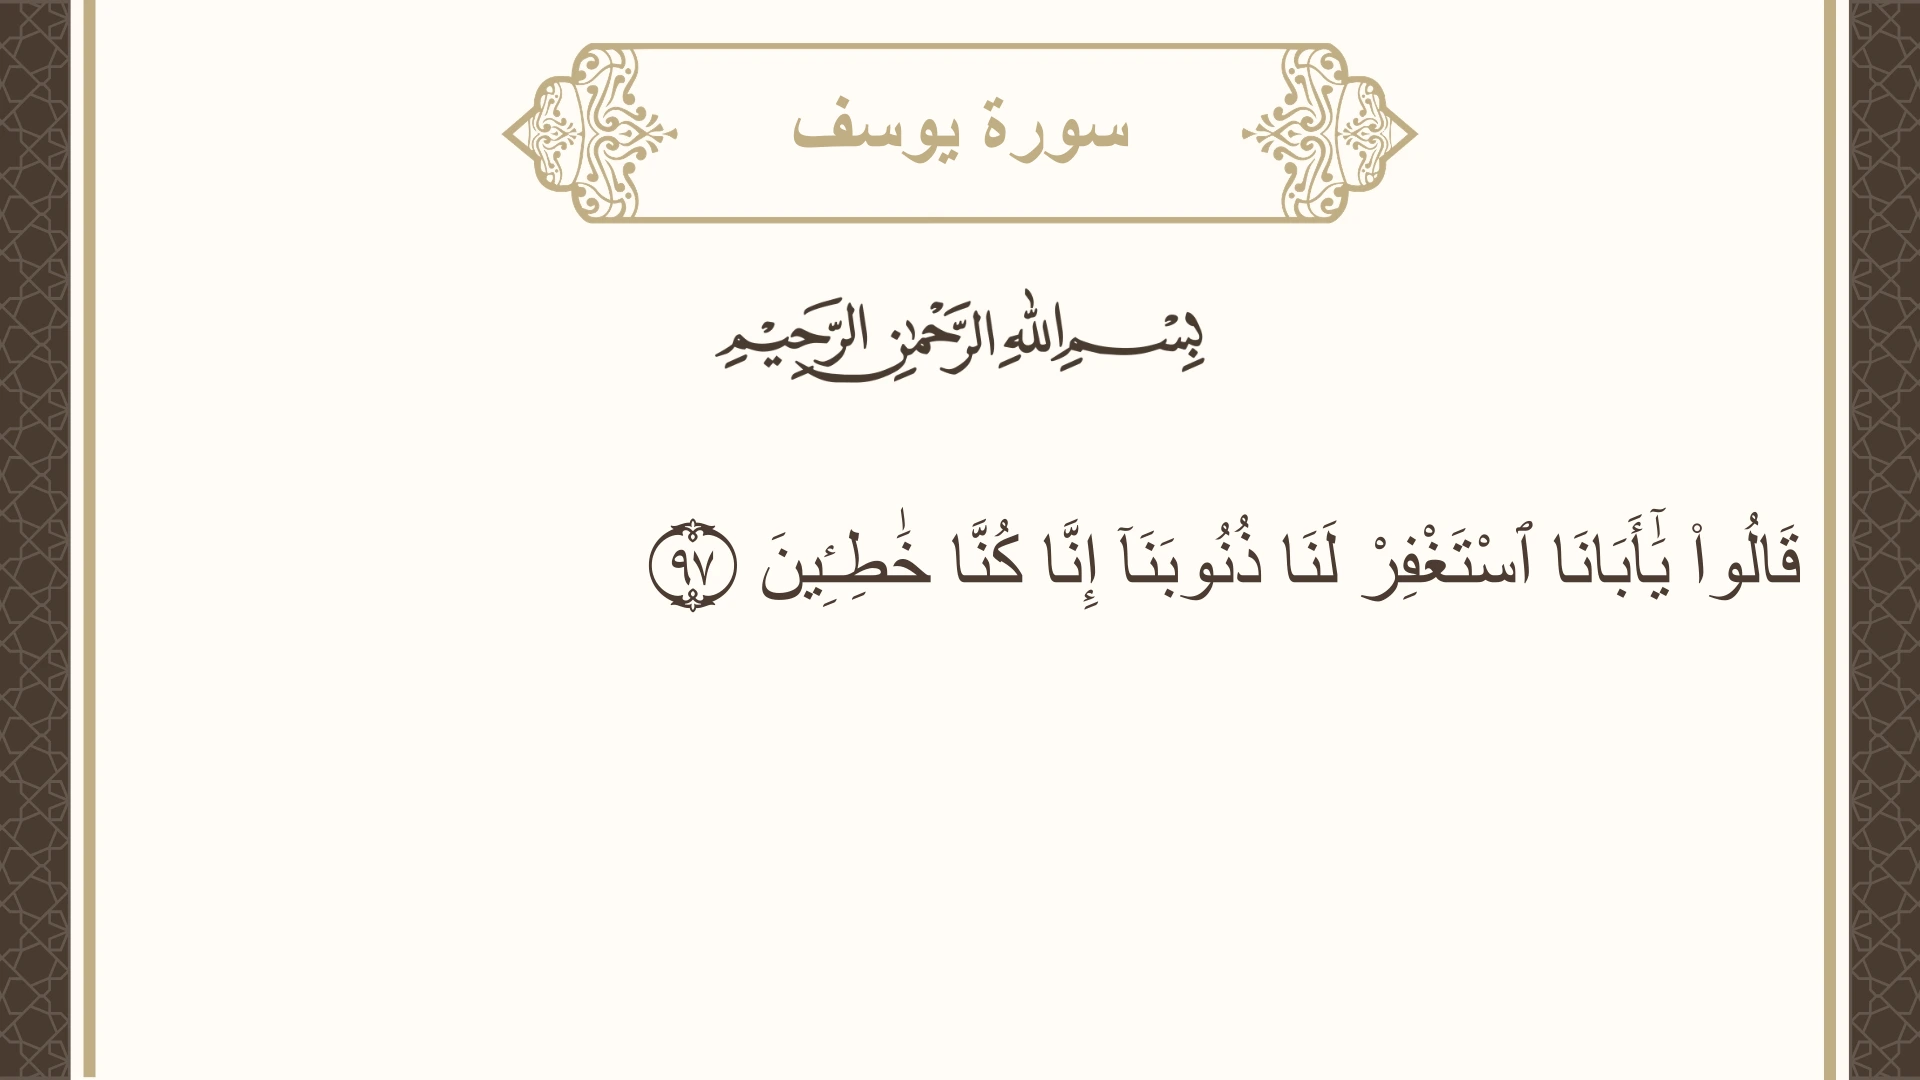 سورة يوسف
بِسْمِ اللهِ الرَّحْمٰنِ الرَّحِيْمِ
قَالُوا۟ يَٰٓأَبَانَا ٱسْتَغْفِرْ لَنَا ذُنُوبَنَآ إِنَّا كُنَّا خَٰطِـِٔينَ ٩٧